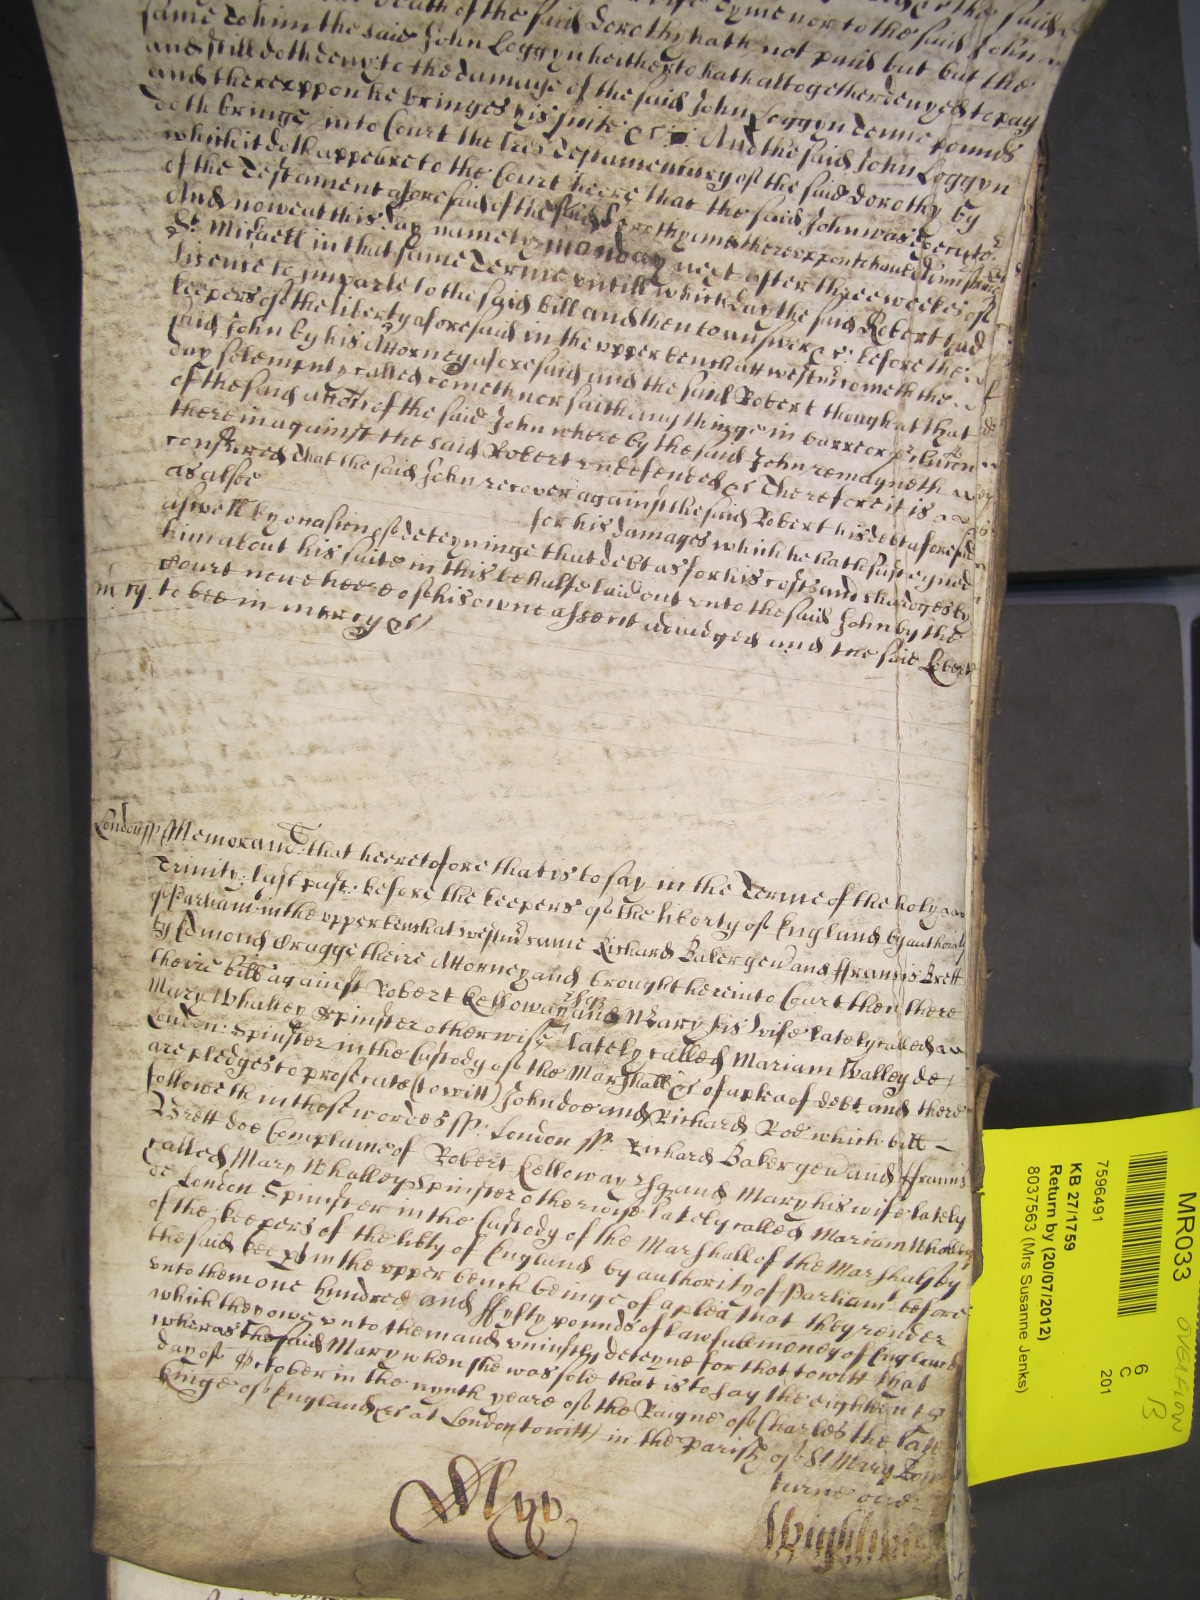 death of the said Dorothy hath not paid but but the
same to him the said John Loggyn heitherto hath altogether denyed to pay
and still doth deny to the damage of the said John Loggyn Tenne pounds
and thereuppon he bringes his suite &c: And the said John Loggyn
doth bringe into Court the lres Testamentary of the said Dorothy by
which it doth appeare to the Court heere that the said John was Executor
of the Testament aforesaid of the said Dorothy and thereuppon
And nowe at this day namely monday next after three weekes of
St. Michaell in that same Terme untill which day the said Robert had
licence to imparle to the said bill and then to answer &c: before the
keepers of the liberty aforesaid in the upper bench att westmr cometh the
said John by his Attorney aforesaid and the said Robert though at that
day solemnly called cometh not nor saith any thinge in barre or
of the said acton of the said John where by the said John remayneth
there in against the said Robert undefended &c Therefore it is
considered that the said John recover against the said Robert his debt aforesd
as alsoe
for his damages which he hath susteyned
aswell by occasion of deteyninge that debt as for his costs and chardges by
him about his suite in this behalfe laid out unto the said John by the
Court nowe heere of his owne assent adiudged and the said Robert
m cy. to bee in mercy &c
London ss Memorand: that heeretofore that is to say in the Terme of the holy
Trinity last past: before the keepers of the liberty of England by authority
of Parliam: in the upper bench at westmr came Richard Baker gen and ffrancis Brett
by Edmond Bragge theire Attorney and brought here into Court then there
theire bill against Robert Kelloway Esqr and Mary his wife lately called
Mary Whalley Spinster otherwise lately called Mariam Walley de
London: Spinster in the Custody of the Marshall &c of a plea of debt and there
are pledges to prosecute (to witt) John doe and Richard Roe which bill
followeth in these wordes ss: London ss: Richard Baker gen and ffrancis
Brett doe Complaine of Robert Kelloway Esq and Mary his wife lately
called Mary Whalley Spinster otherwise lately called Mariam Whalley
de London Spinster in the Custody of the Marshall of the Marshalsey
of the keepers of the libty of England by authority of Parliamt before
the said keepers in the upper bench beinge of a plea that they render
unto them one hundred and ffyfty pounds of lawfull money of England
which they owe unto them and uniustly deteyne for that towitt that
wheras the said Mary when she was sole that is to say the eighteenth
day of October in the nynth yeare of the Raigne of Charles the late
Kinge of England &c at London (to witt) in the Parish of St Mary Bow
turne over
MR033
7596491
KB 27/1759
Return by (20/07/2012)
8037563 (Mrs Susanne Jenks)
6
C
201
OVERFLOW
13